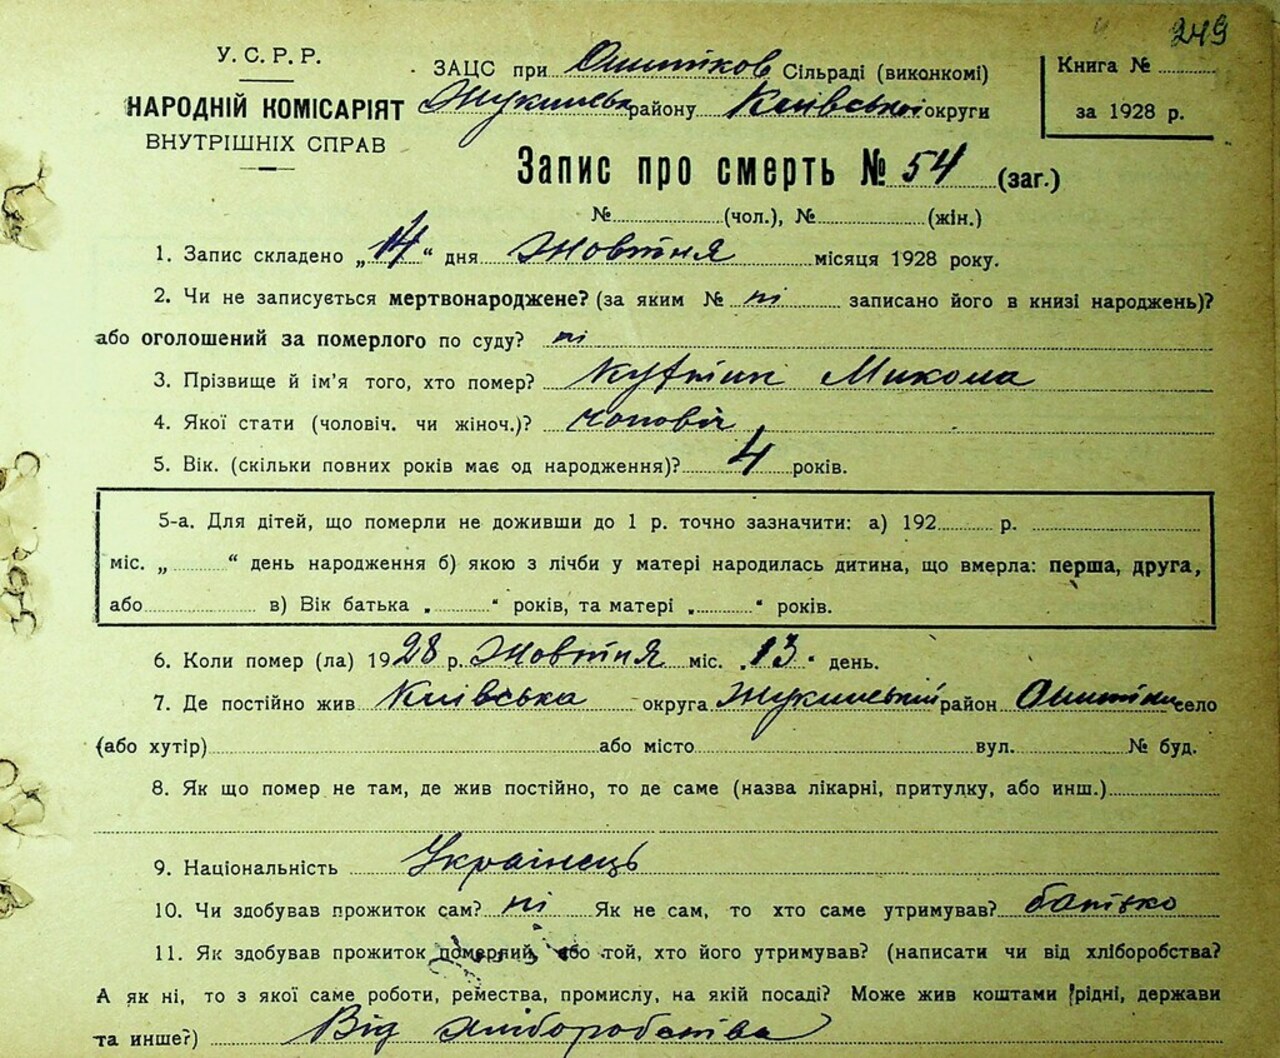 249
У. С. Р. Р.
НАРОДНІЙ КОМІСАРІЯТ
ВНУТРІШНІХ СПРАВ
ЗАЦС при Сільраді (виконкомі)
району Київської округи
Книга №
за 1928 р.
Запис про смерть № 54 (заг.)
№ (чол.), № (жін.)
1. Запис складено „14“ дня Жовтня місяця 1928 року.
2. Чи не записується мертвонароджене? (за яким № ні записано його в книзі народжень)?
або оголошений за померлого по суду? ні
3. Прізвище й ім'я того, хто помер? Микола
4. Якої стати (чоловіч. чи жіноч.)? чоловіч
5. Вік. (скільки повних років має од народження)? 4 років.
5-а. Для дітей, що померли не доживши до 1 р. точно зазначити: а) 192 р.
міс. „ “ день народження б) якою з лічби у матері народилась дитина, що вмерла: перша, друга,
або в) Вік батька „ “ років, та матері „ “ років.
6. Коли помер (ла) 1928 р. Жовтня міс. „13“ день.
7. Де постійно жив Київська округа Жукинський район село
(або хутір) або місто вул. № буд.
8. Як що помер не там, де жив постійно, то де саме (назва лікарні, притулку, або инш.)
9. Національність Українець
10. Чи здобував прожиток сам? ні Як не сам, то хто саме утримував? батько
11. Як здобував прожиток померлий, або той, хто його утримував? (написати чи від хліборобства?
А як ні, то з якої саме роботи, ремества, промислу, на якій посаді? Може жив коштами рідні, держави
та инше?) Від хліборобства